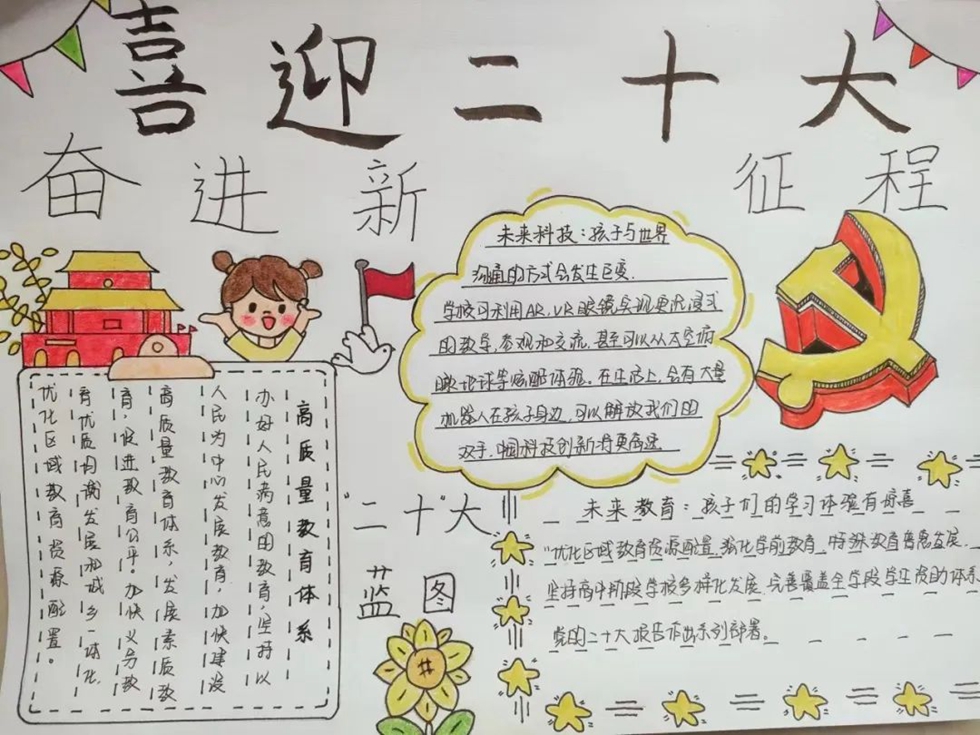 喜迎二十大
奋进新征程
未来科技：孩子与世界
沟通的方式会发生巨变.
学校可利用AR,VR眼镜实现更沉浸式
的教学,参观和交流,甚至可以从太空俯
瞰地球等炫酷体验。在生活上,会有大量
机器人在孩子身边,可以解放我们的
双手,中国科技创新将更高速
高质量教育体系
办好人民满意的教育,坚持以
人民为中心发展教育,加快建设
高质量教育体系,发展素质教
育,促进教育公平。加快义务教
育优质均衡发展和城乡一体化,
优化区域教育资源配置。
"二十"大
蓝图
未来教育：孩子们的学习体验有惊喜
"优化区域教育资源配置,强化学前教育、特殊教育普惠发展,
坚持高中阶段学校多样化发展,完善覆盖全学段学生资助体系
党的二十大报告作出系列部署。